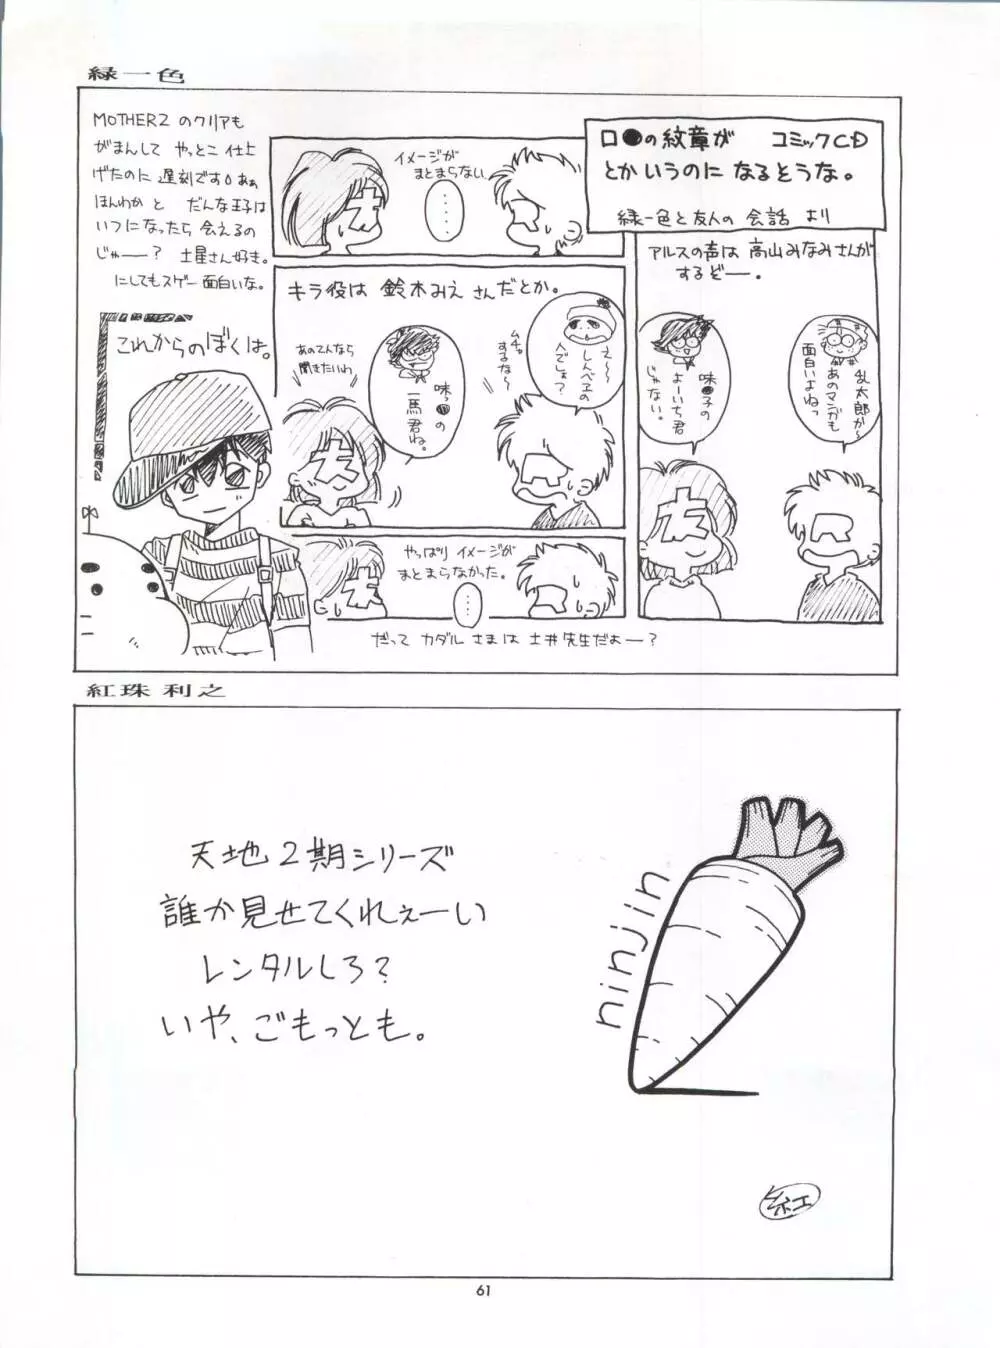 緑一色
MOTHER2 のクリアも
がまんして やっとこ 仕上
げたのに 遅刻です。あぁ
ほんわか と だんな王子は
いつになったら 会えるの
じゃーー? 土星さん好き。
にしてもスゲー面白いな。
これからのぼくは。
ロ●の紋章が コミックCD
とかいうのに なるそうな。
緑一色と友人の 会話 より
アルスの声は 高山みなみさんが
するぞー。
乱太郎か〜
あのマンガも
面白いよねっ
味●子の
よーいち君
じゃない。
イメージが
まとまらない
……
キラ役は 鈴木みえ さんだとか。
え〜〜
しんベヱの
人でしょ?
ムチャ
するな〜
味っ●の
一馬君ね。
あのてんなら
聞きたいわ
友
R
やっぱり イメージが
まとまらなかった。
……
だって カダル さまは 土井先生だよー?
紅珠利之
天地2期シリーズ
誰か見せてくれぇーい
レンタルしろ?
いや、ごもっとも。
ninjin
紅
61